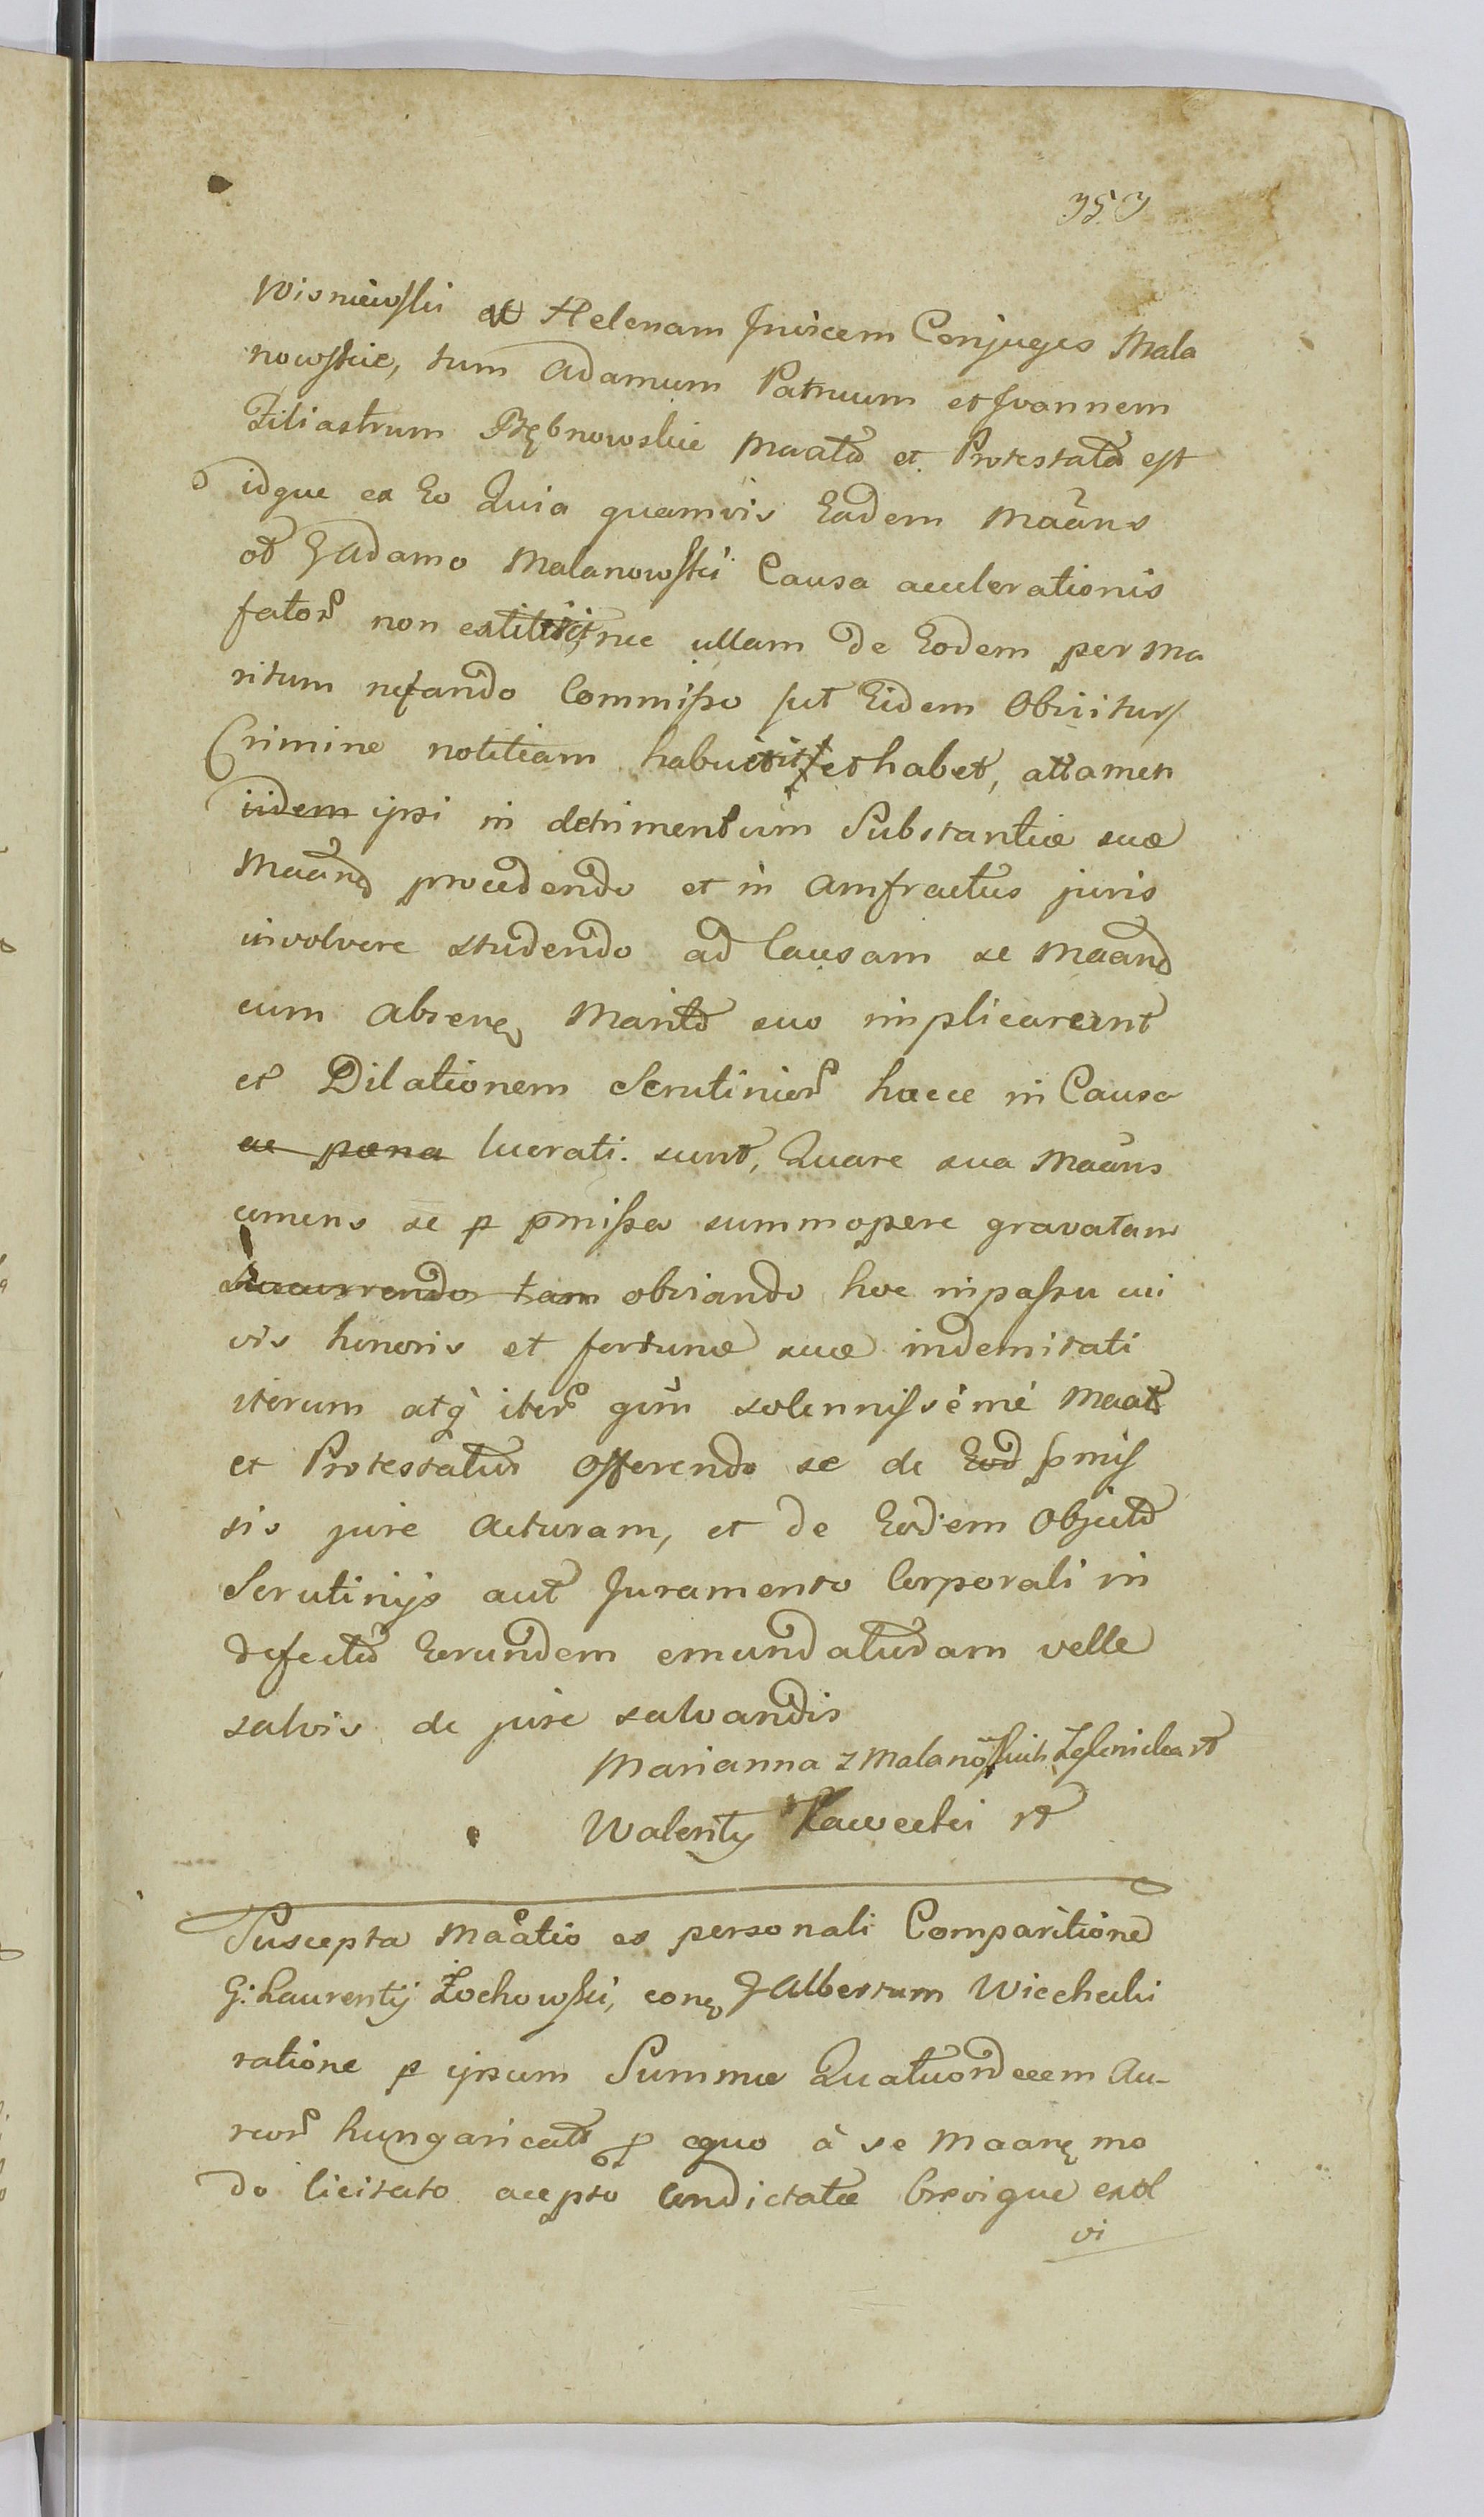 353
Wisniewski et Helenam Invicem Conjuges Mala
nowskie, tum Adamum Patruum et Joannem
Filiastrum Rębnowskie maatō et Protestatō est
idque ex Eo Quia quamvis Eadem Maãns
ob G Adamo Malanowski Causa accelerationis
fator non extiterit, nec ullam de Eodem per ma
ritum nefando Commisso sut Eidem Obiicitur
Crimine notitiam habuerit et habet, attamen
iidem ipsi in detrimentum Substantiæ suæ
Maãnd procedendo et in amfractus juris
involvere studendo ad Causam se maand
cum absene Marito suo implicarunt
et Dilationem Scrutinior haece in Causa
ac pæna lucrati sunt, Quare sua Maãns
cernens se p pmissa summopere gravatam
Succurrendo tam obviando hoc inpassu cui
vis honoris et fortunæ suæ indemitati
iterum atq iter qũm solennissemè Maat
et Protestatur Offerendo se de Eod pmis
sis jure Acturam, et de Eodem Objecto
Scrutinijs aut Juramento Corporali in
defectu Eorundem emundaturam velle
salvis de jure salvandis
Marianna z Malanoskich
Walenty Kawecki
Suscepta Maãtio ex personali Comparitione
G: Laurentij Żochowski, conę G Albertum Wiechecki
ratione p ipsum Summæ Quatuordecem Au-
reor hungaricat p equo à se maanę mo
do licitato accepto Condictatæ brevique exol
vi